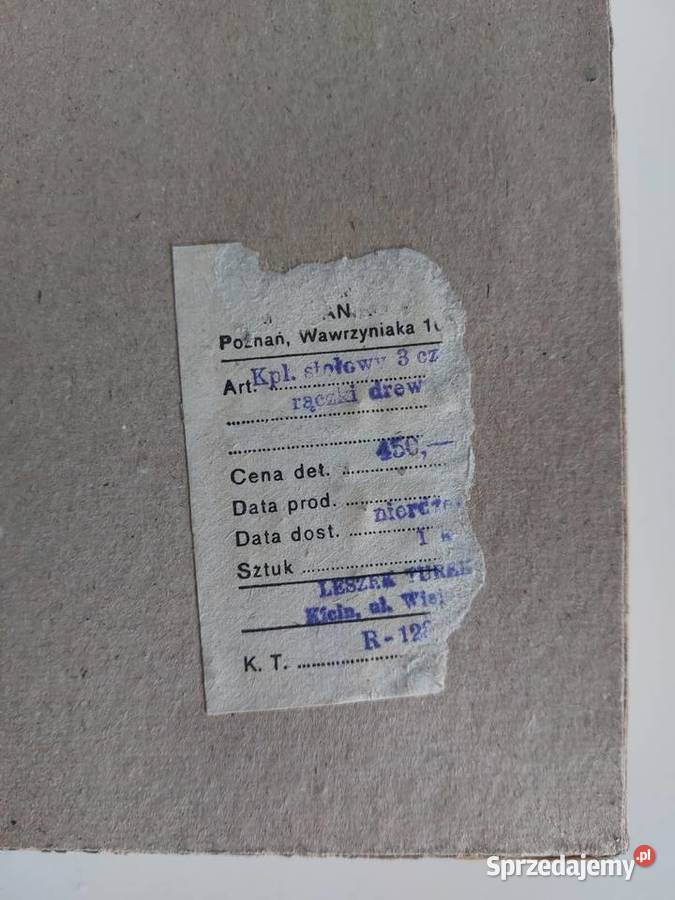 Poznań, Wawrzyniaka
Art. Kpl. stołowy 3 cz
rączki drew
450,—
Cena det.
Data prod.
Data dost.
Sztuk
LESZEK TUREK
Kicin, ul.
R-12
K. T.
Sprzedajemy.pl